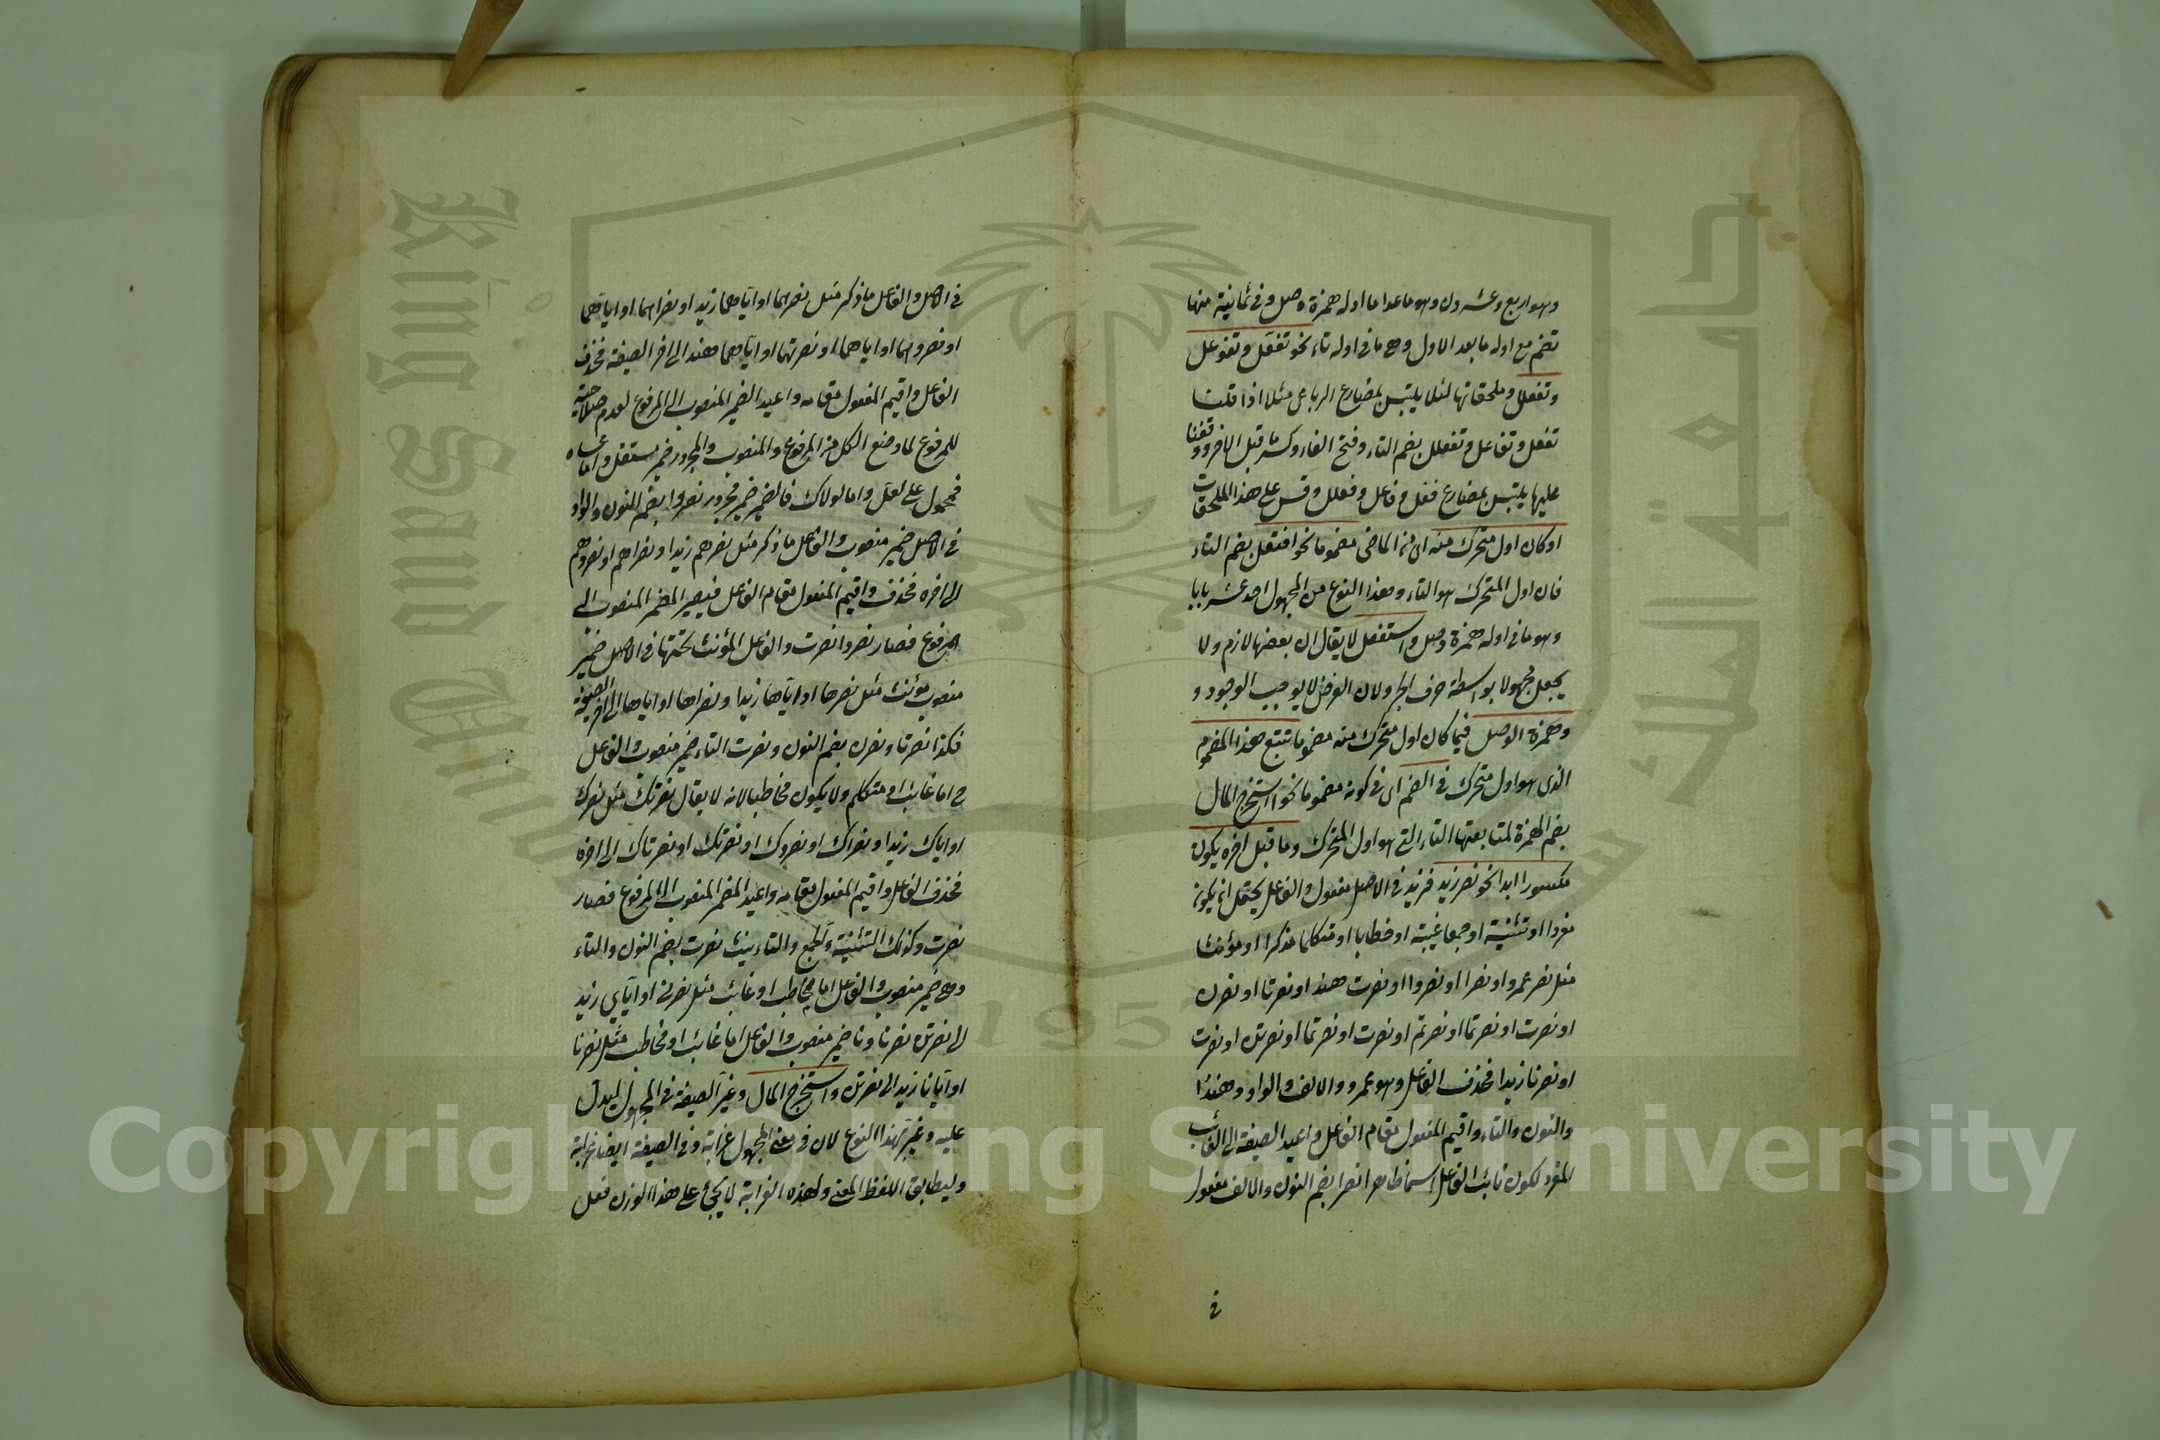 وهو اربع وعشرون وهو ما عدا ما اوله همزة وصل وفى ثمانية منها
تضم مع اوله ما بعد الاول وهى ما فى اوله تاء نحو تفعل وتفوعل
وتفعلل وملحقاتها لئلا يلتبس بمضارع الرباعى مثلا اذا قلت
تفعل وتفاعل وتفعلل بضم التاء وفتح الفاء وكسر ما قبل الاخر ووقفنا
عليها يلتبس بمضارع فعل وفاعل وفعلل وقس على هذا الملحقات
او كان اول متحرك منه اى من الماضى مضموما نحو افتعل بضم التاء
فان اول المتحرك هو التاء وهذا النوع من المجهول احد عشر بابا
وهو ما فى اوله همزة وصل واستفعل لا يقال ان بعضها لازم ولا
يجعل مجهولا بواسطة حرف الجر ولان الفرض لا يوجيب الوجود و
وهمزة الوصل فيما كان اول متحرك منه مضموما تتبع هذا المضموم
الذى هو اول متحرك فى الضم اى فى كونه مضموما نحو استخرج المال
بضم الهمزة لمتابعتها التاء التى هو اول المتحرك وما قبل اخره يكون
مكسورا ابدا نحو نصر زيد فزيد فى الاصل مفعول والفاعل يحتمل ان يكون
مفردا او تثنية او جمعا غيبة او خطابا او متكلما مذكرا او مؤنثا
مثل نصر عمرو او نصرا او نصروا او نصرت هند او نصرتا او نصرن
او نصرت او نصرتما او نصرتم او نصرت او نصرتما او نصرتن او نصرت
او نصرنا زيدا فحذف الفاعل وهو عمرو والالف والواو وهندا
والنون والتاء واقيم المفعول مقام الفاعل واعيد الصيغة الى الغائب
المفرد لكون نائب الفاعل اسما ظاهرا نصرا بضم النون والالف مفعول
فى
فى الاصل والفاعل ما ذكر مثل نصرهما او اياهما زيد او نصراهما او اياهما
او نصروهما او اياهما او نصرتهما او اياهما هند الى اخر الصيغة فحذف
الفاعل واقيم المفعول مقامه واعيد الضمير المنصوب الى المرفوع لعدم صلاحيته
للمرفوع لما وضع الكل من المرفوع والمنصوب والمجرور ضمير مستقل واما عساه
فمحمول على لعل واما لولاك فالضمير ضمير مجرور نصروا بضم النون والواو
فى الاصل ضمير منصوب والفاعل ما ذكر مثل نصرهم زيد او نصراهم او نصروهم
الى اخره فحذف واقيم المفعول مقام الفاعل فيصير المضمر المنصوب الى
المرفوع فصار نصروا نصرت والفاعل المؤنث تحتها فى الاصل ضمير
منصوب مؤنث مثل نصرها او اياها زيدا ونصراها او اياها الى اخر الصيغة
فكذا نصرتا ونصرن بضم النون ونصرت التاء ضمير منصوب والفاعل
ح اما غائب او متكلم ولا يكون مخاطبا لانه لا يقال نصرتك مثل نصرك
او اياك زيد او نصراك او نصروك او نصرتك او نصرتاك الى اخره
فحذف الفاعل واقيم المفعول مقامه واعيد المضمر المنصوب الى المرفوع فصار
نصرت وكذلك التثنية والجمع والتاءنيث نصرت بضم النون والتاء
وهى ضمير منصوب والفاعل اما مخاطب او غائب مثل نصرنى او اياى زيد
الى نصرتن نصرنا ونا ضمير منصوب والفاعل اما غائب او مخاطب مثل نصرنا
او ايانا زيد الى نصرتن واستخرج المال وغير الصيغة فى المجهول ليدل
عليه وغير بهذا النوع لان فى معنى المجهول غرابة وفى الصيغة ايضا غرابة
وليطابق اللفظ المعنى ولهذه الغرابة لا يجئ على هذا الوزن فعل
Copyright © King Saud University
King Saud University
1957